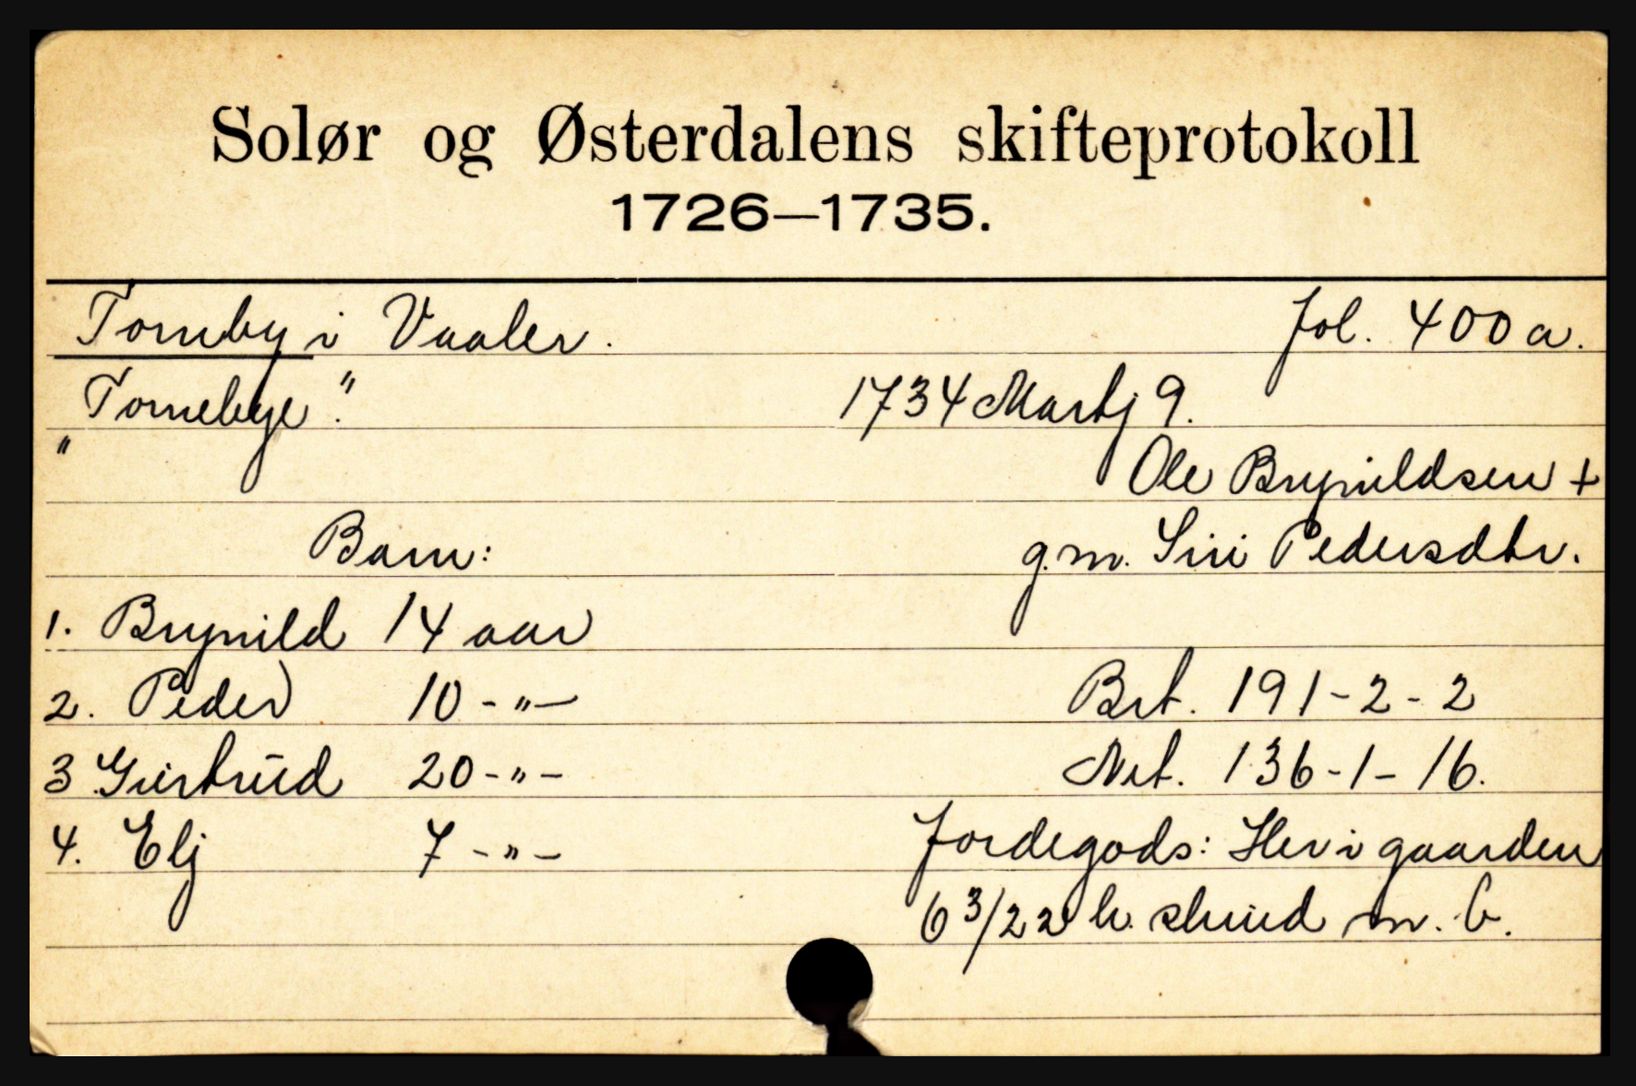 Solør og Østerdalens skifteprotokoll
1726—1735.
Torneby i Vaaler. Fol. 400 a.
"Tornebye". 1734 Martj 9.
Ole Brynildsen +
Barn: g.m. Siri Pedersdtr.
1. Brynild 14 aar
2. Peder 10 -"- Brt. 191-2-2
3 Giertrud 20 -"- Net. 136-1-16.
4. Elj 7 -"- Jordegods: Her i gaarden
6 3/22 h. skind m. b.